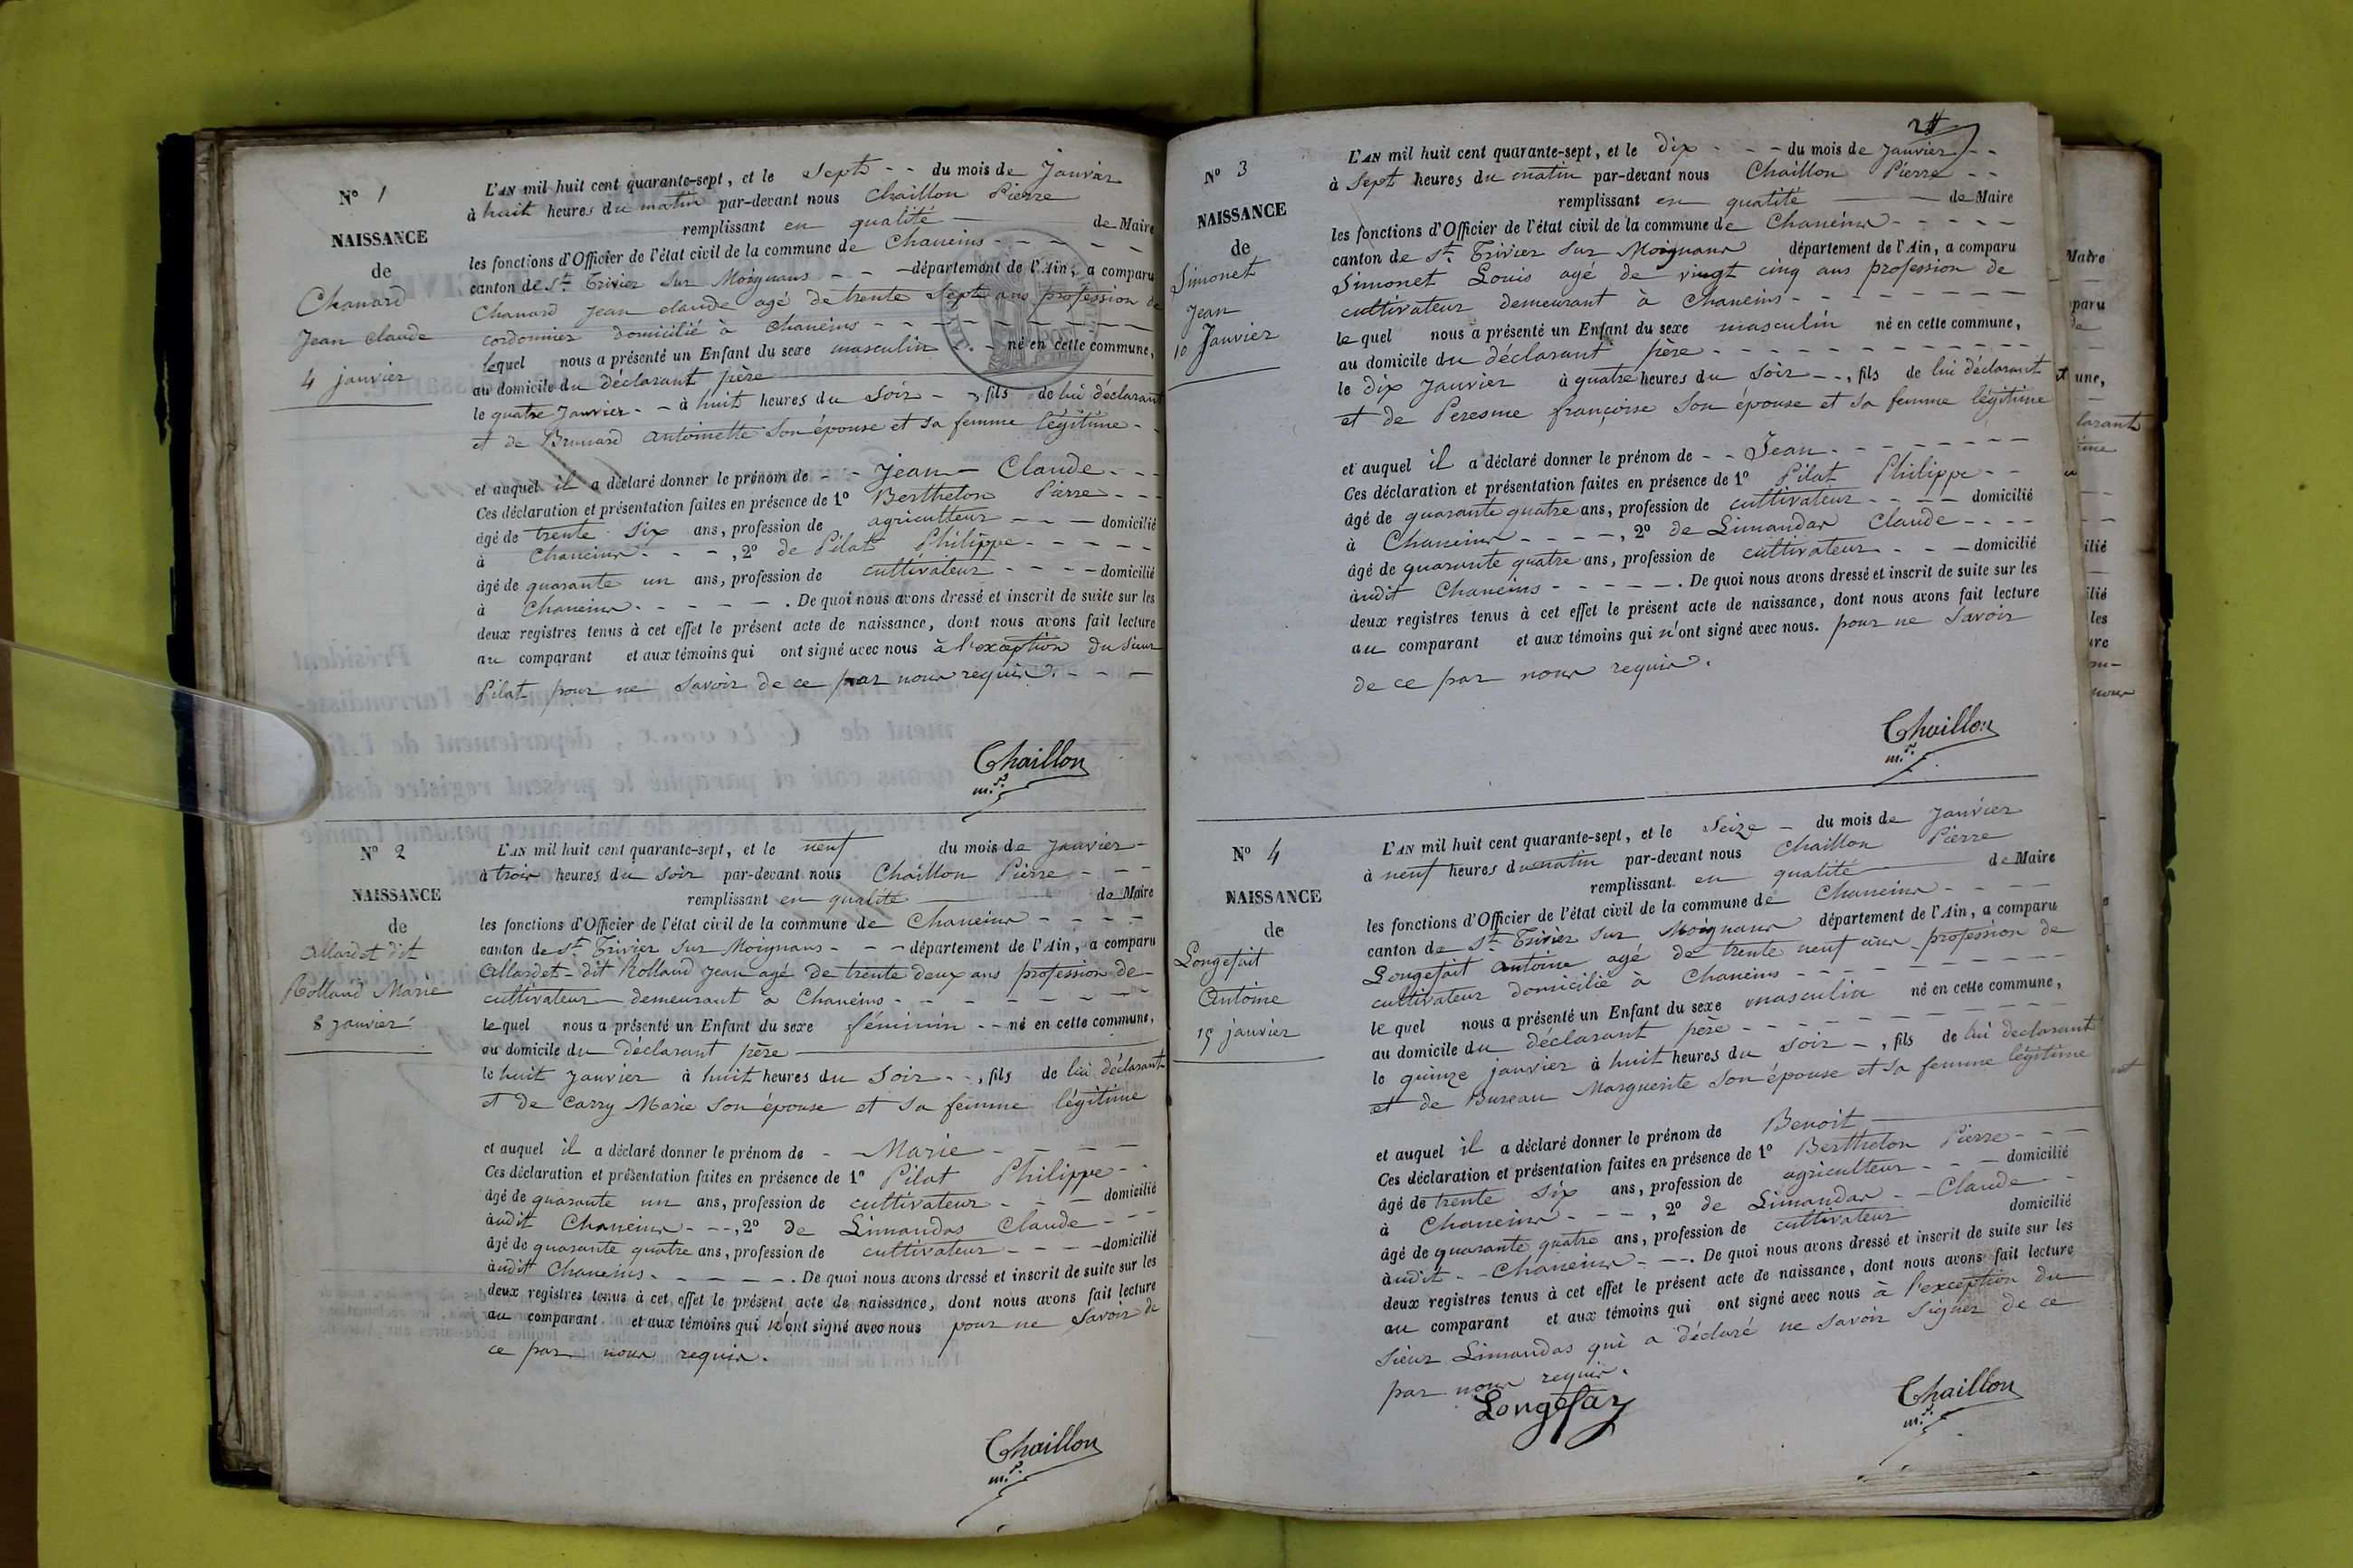 N° 1
NAISSANCE
de
Chanard
Jean claude
4 janvier
L'AN mil huit cent quarante-sept, et le sept - - du mois de Janvier
à huit heures du matin par-devant nous Chaillon Pierre
remplissant en qualité — de Maire
les fonctions d'Officier de l'état civil de la commune de Chaneins - - - - -
canton de St. Trivier sur Moignans - - - département de l'Ain, a comparu
Chanard Jean claude agé de trente sept ans profession de
cordonnier domicilié à Chaneins - - - - - - -
lequel nous a présenté un Enfant du sexe masculin - - né en cette commune,
au domicile du déclarant père
le quatre Janvier - - à huit heures du soir - -, fils de lui déclarant
et de Brunard antoinette son épouse et sa femme légitime - -
et auquel il a déclaré donner le prénom de - - Jean - Claude - - -
Ces déclaration et présentation faites en présence de 1° Berthelon Pierre - - -
âgé de trente six ans, profession de agriculteur - - - domicilié
à Chaneins - - -, 2° de Pilat Philippe - - - - -
âgé de quarante un ans, profession de cultivateur - - - - domicilié
à Chaneins - - - - - . De quoi nous avons dressé et inscrit de suite sur les
deux registres tenus à cet effet le présent acte de naissance, dont nous avons fait lecture
au comparant et aux témoins qui ont signé avec nous à l'exception du sieur
Pilat pour ne savoir de ce par nous requis. - - -
Chaillon
m.re
N° 2
NAISSANCE
de
Allardet dit
Rolland Marie
8 janvier
L'AN mil huit cent quarante-sept, et le neuf du mois de Janvier -
à trois heures du soir par-devant nous Chaillon Pierre - - -
remplissant en qualité — de Maire
les fonctions d'Officier de l'état civil de la commune de Chaneins - - - -
canton de St. Trivier sur Moignans - - - département de l'Ain, a comparu
Allardet - dit Rolland Jean agé de trente deux ans profession de -
cultivateur demeurant à Chaneins - - - - - - -
lequel nous a présenté un Enfant du sexe féminin - - né en cette commune,
au domicile du déclarant père —
le huit Janvier à huit heures du soir - -, fils de lui déclarant
et de Carry Marie son épouse et sa femme légitime
et auquel il a déclaré donner le prénom de - - Marie - - - -
Ces déclaration et présentation faites en présence de 1° Pilat Philippe - -
âgé de quarante un ans, profession de cultivateur - - - domicilié
audit Chaneins - - -, 2° de Limandas Claude - - -
âgé de quarante quatre ans, profession de cultivateur - - - - domicilié
audit Chaneins - - - - - . De quoi nous avons dressé et inscrit de suite sur les
deux registres tenus à cet effet le présent acte de naissance, dont nous avons fait lecture
au comparant et aux témoins qui n'ont signé avec nous pour ne savoir de
ce par nous requis.
Chaillon
m.re
N° 3
NAISSANCE
de
Simonet
Jean
10 Janvier
L'AN mil huit cent quarante-sept, et le dix - - - du mois de Janvier - -
à sept heures du matin par-devant nous Chaillon Pierre - -
remplissant en qualité — de Maire
les fonctions d'Officier de l'état civil de la commune de Chaneins - - - - -
canton de St. Trivier sur Moignans département de l'Ain, a comparu
Simonet Louis agé de vingt cinq ans profession de
cultivateur demeurant à Chaneins - - - - - - - -
lequel nous a présenté un Enfant du sexe masculin né en cette commune,
au domicile du déclarant père - - - - - - - - - -
le dix Janvier à quatre heures du soir - -, fils de lui déclarant
et de Peresme françoise son épouse et sa femme légitime
et auquel il a déclaré donner le prénom de - - Jean - - - - - - -
Ces déclaration et présentation faites en présence de 1° Pilat Philippe - -
âgé de quarante quatre ans, profession de cultivateur - - - - domicilié
à Chaneins - - - -, 2° de Limandas Claude - - - -
âgé de quarante quatre ans, profession de cultivateur - - - domicilié
audit Chaneins - - - - - . De quoi nous avons dressé et inscrit de suite sur les
deux registres tenus à cet effet le présent acte de naissance, dont nous avons fait lecture
au comparant et aux témoins qui n'ont signé avec nous. pour ne savoir
de ce par nous requis.
Chaillon
m.re
N° 4
NAISSANCE
de
Longefait
Antoine
15 janvier
L'AN mil huit cent quarante-sept, et le seize - du mois de Janvier
à neuf heures du matin par-devant nous Chaillon Pierre
remplissant en qualité — de Maire
les fonctions d'Officier de l'état civil de la commune de Chaneins - - - -
canton de St. Trivier sur Moignans département de l'Ain, a comparu
Longefait Antoine agé de trente neuf ans profession de
cultivateur domicilié à Chaneins - - - - - - - -
lequel nous a présenté un Enfant du sexe masculin né en cette commune,
au domicile du déclarant père - - - - - - - -
le quinze janvier à huit heures du soir -, fils de lui déclarant
et de Bureau Marguerite son épouse et sa femme légitime
et auquel il a déclaré donner le prénom de Benoit —
Ces déclaration et présentation faites en présence de 1° Berthelon Pierre - - -
âgé de trente six ans, profession de agriculteur - - - domicilié
à Chaneins - - -, 2° de Limandas - - Claude - -
âgé de quarante quatre ans, profession de cultivateur domicilié
audit - - Chaneins - - - . De quoi nous avons dressé et inscrit de suite sur les
deux registres tenus à cet effet le présent acte de naissance, dont nous avons fait lecture
au comparant et aux témoins qui ont signé avec nous à l'exception du
sieur Limandas qui a déclaré ne savoir signer de ce
par nous requis.
Longefay
Chaillon
m.re